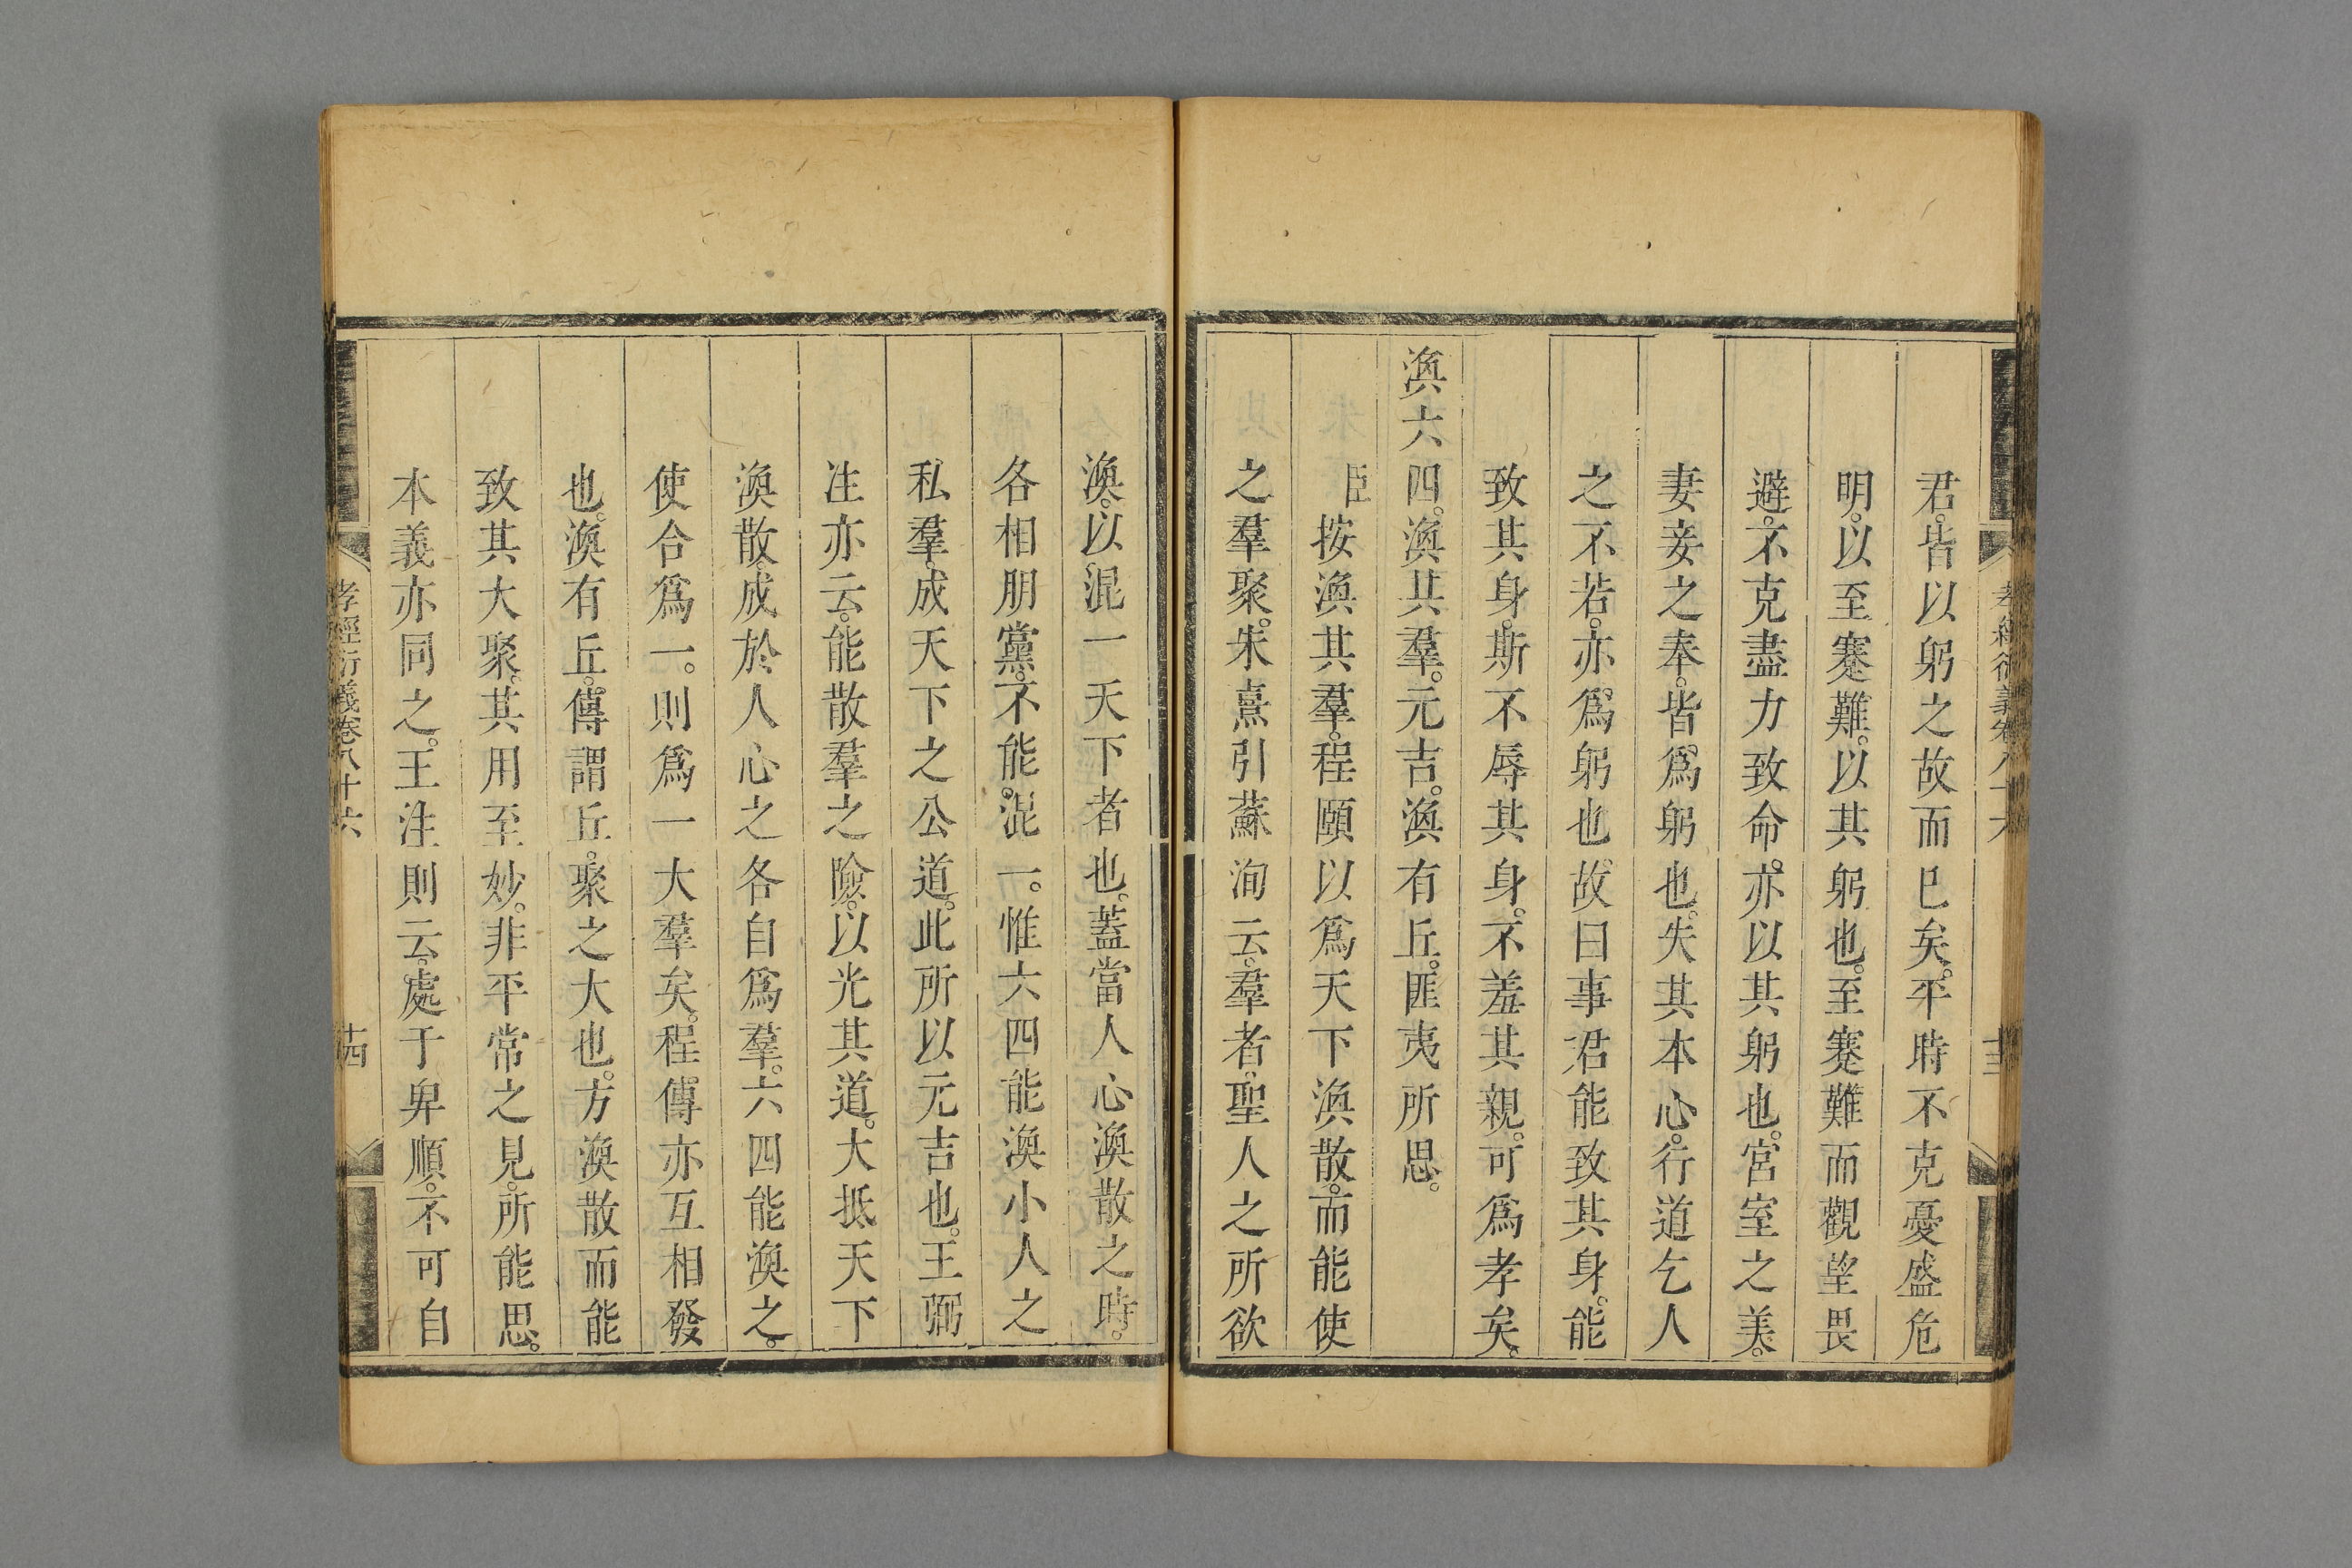 君。皆以躬之故而已矣。平時不克憂盛危
明。以至蹇難。以其躬也。至蹇難而觀望畏
避。不克盡力致命。亦以其躬也。宮室之美。
妻妾之奉。皆爲躬也。失其本心。行道乞人
之不若。亦爲躬也。故曰事君能致其身。能
致其身。斯不辱其身。不羞其親。可爲孝矣。
渙六四。渙其羣。元吉。渙有丘。匪夷所思。
臣按渙其羣。程頤以爲天下渙散。而能使
之羣聚。朱熹引蘇洵云。羣者。聖人之所欲
渙。以混一天下者也。蓋當人心渙散之時。
各相朋黨。不能混一。惟六四能渙小人之
私羣。成天下之公道。此所以元吉也。王弼
注亦云。能散羣之險。以光其道。大抵天下
渙散。成於人心之各自爲羣。六四能渙之。
使合爲一。則爲一大羣矣。程傳亦互相發
也。渙有丘。傳謂丘。聚之大也。方渙散而能
致其大聚。其用至妙。非平常之見。所能思。
本義亦同之。王注則云。處于卑順。不可自
孝經衍義卷八十六
十四